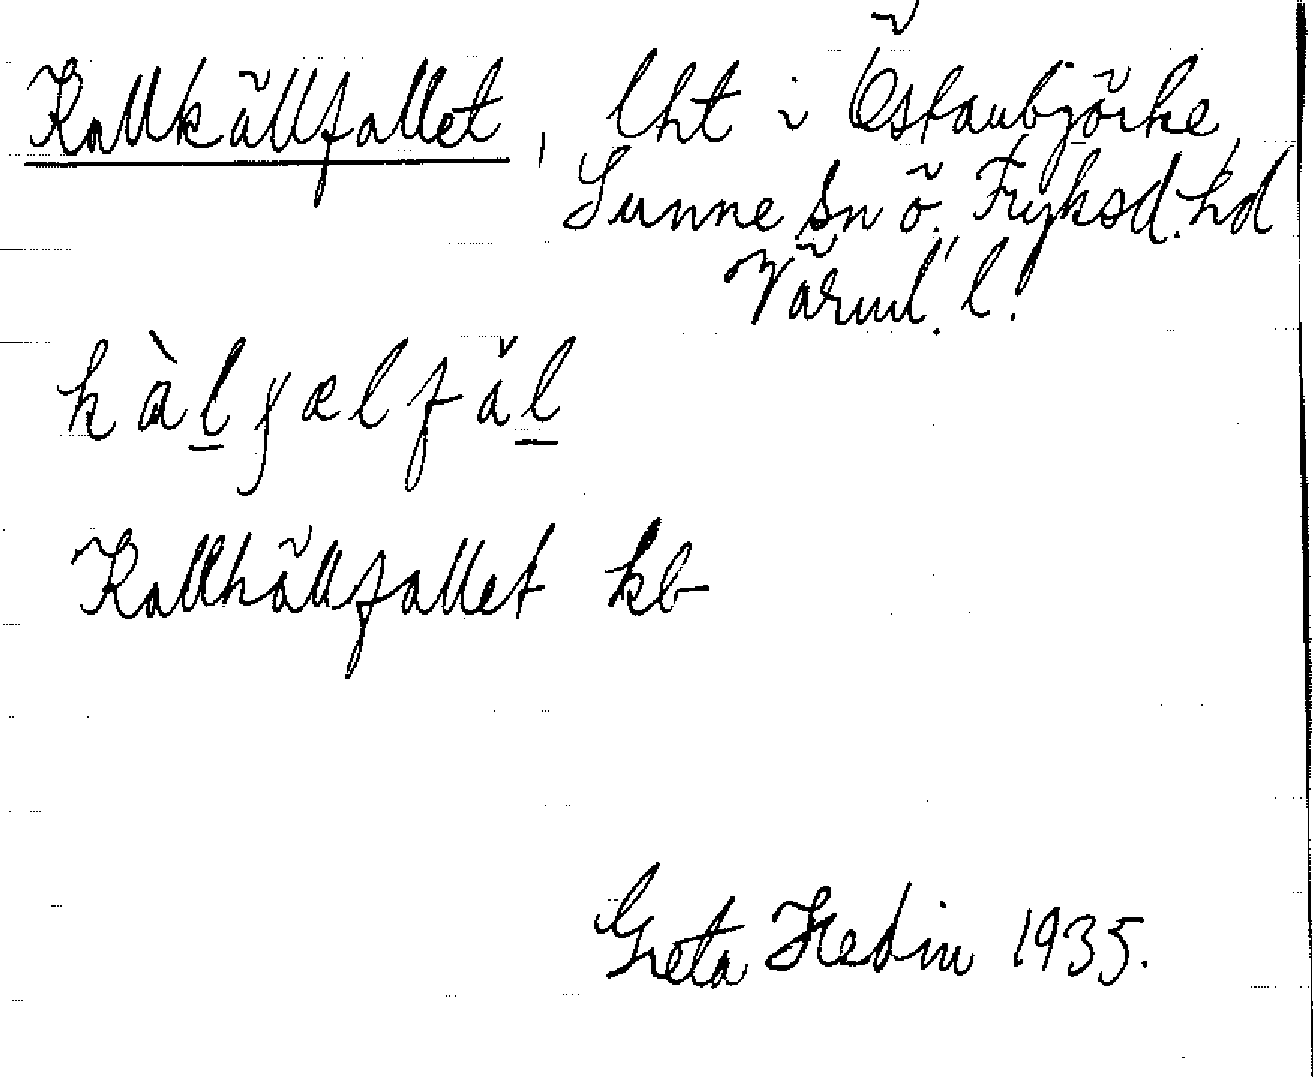 Kallkällfallet, lht i Östanbjörke,
Sunne sn Ö. Fryksd. hd
Värml. l.
kàl̲ɟælfăl̲
Kallkällfallet kb
Greta Hedin 1935.